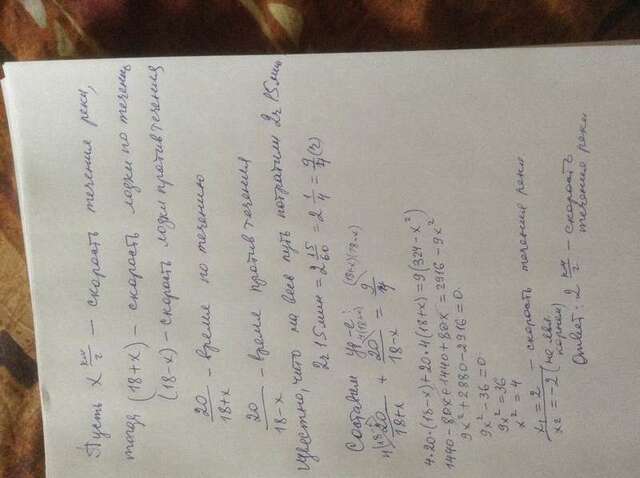 Пусть x км/г — скорость течения реки,
тогда (18+x) — скорость лодки по течению
(18-x) — скорость лодки против течения
20/18+x - время по течению
20/18-x - время против течения
известно, что на весь путь потратили 2ч 15 мин
2ч 15 мин = 2 15/60 = 2 1/4 = 9/4 (г)
Составим ур-е:
20/18+x + 20/18-x = 9/4
4·20·(18-x)+20·4(18+x)=9(324-x²)
1440-80x+1440+80x=2916-9x²
9x²+2880-2916=0
9x²-36=0
9x²=36
x²=4
x₁=2 — скорость течения реки
x₂=-2 (не явл. корнем)
Ответ: 2 км/г - скорость
течения реки